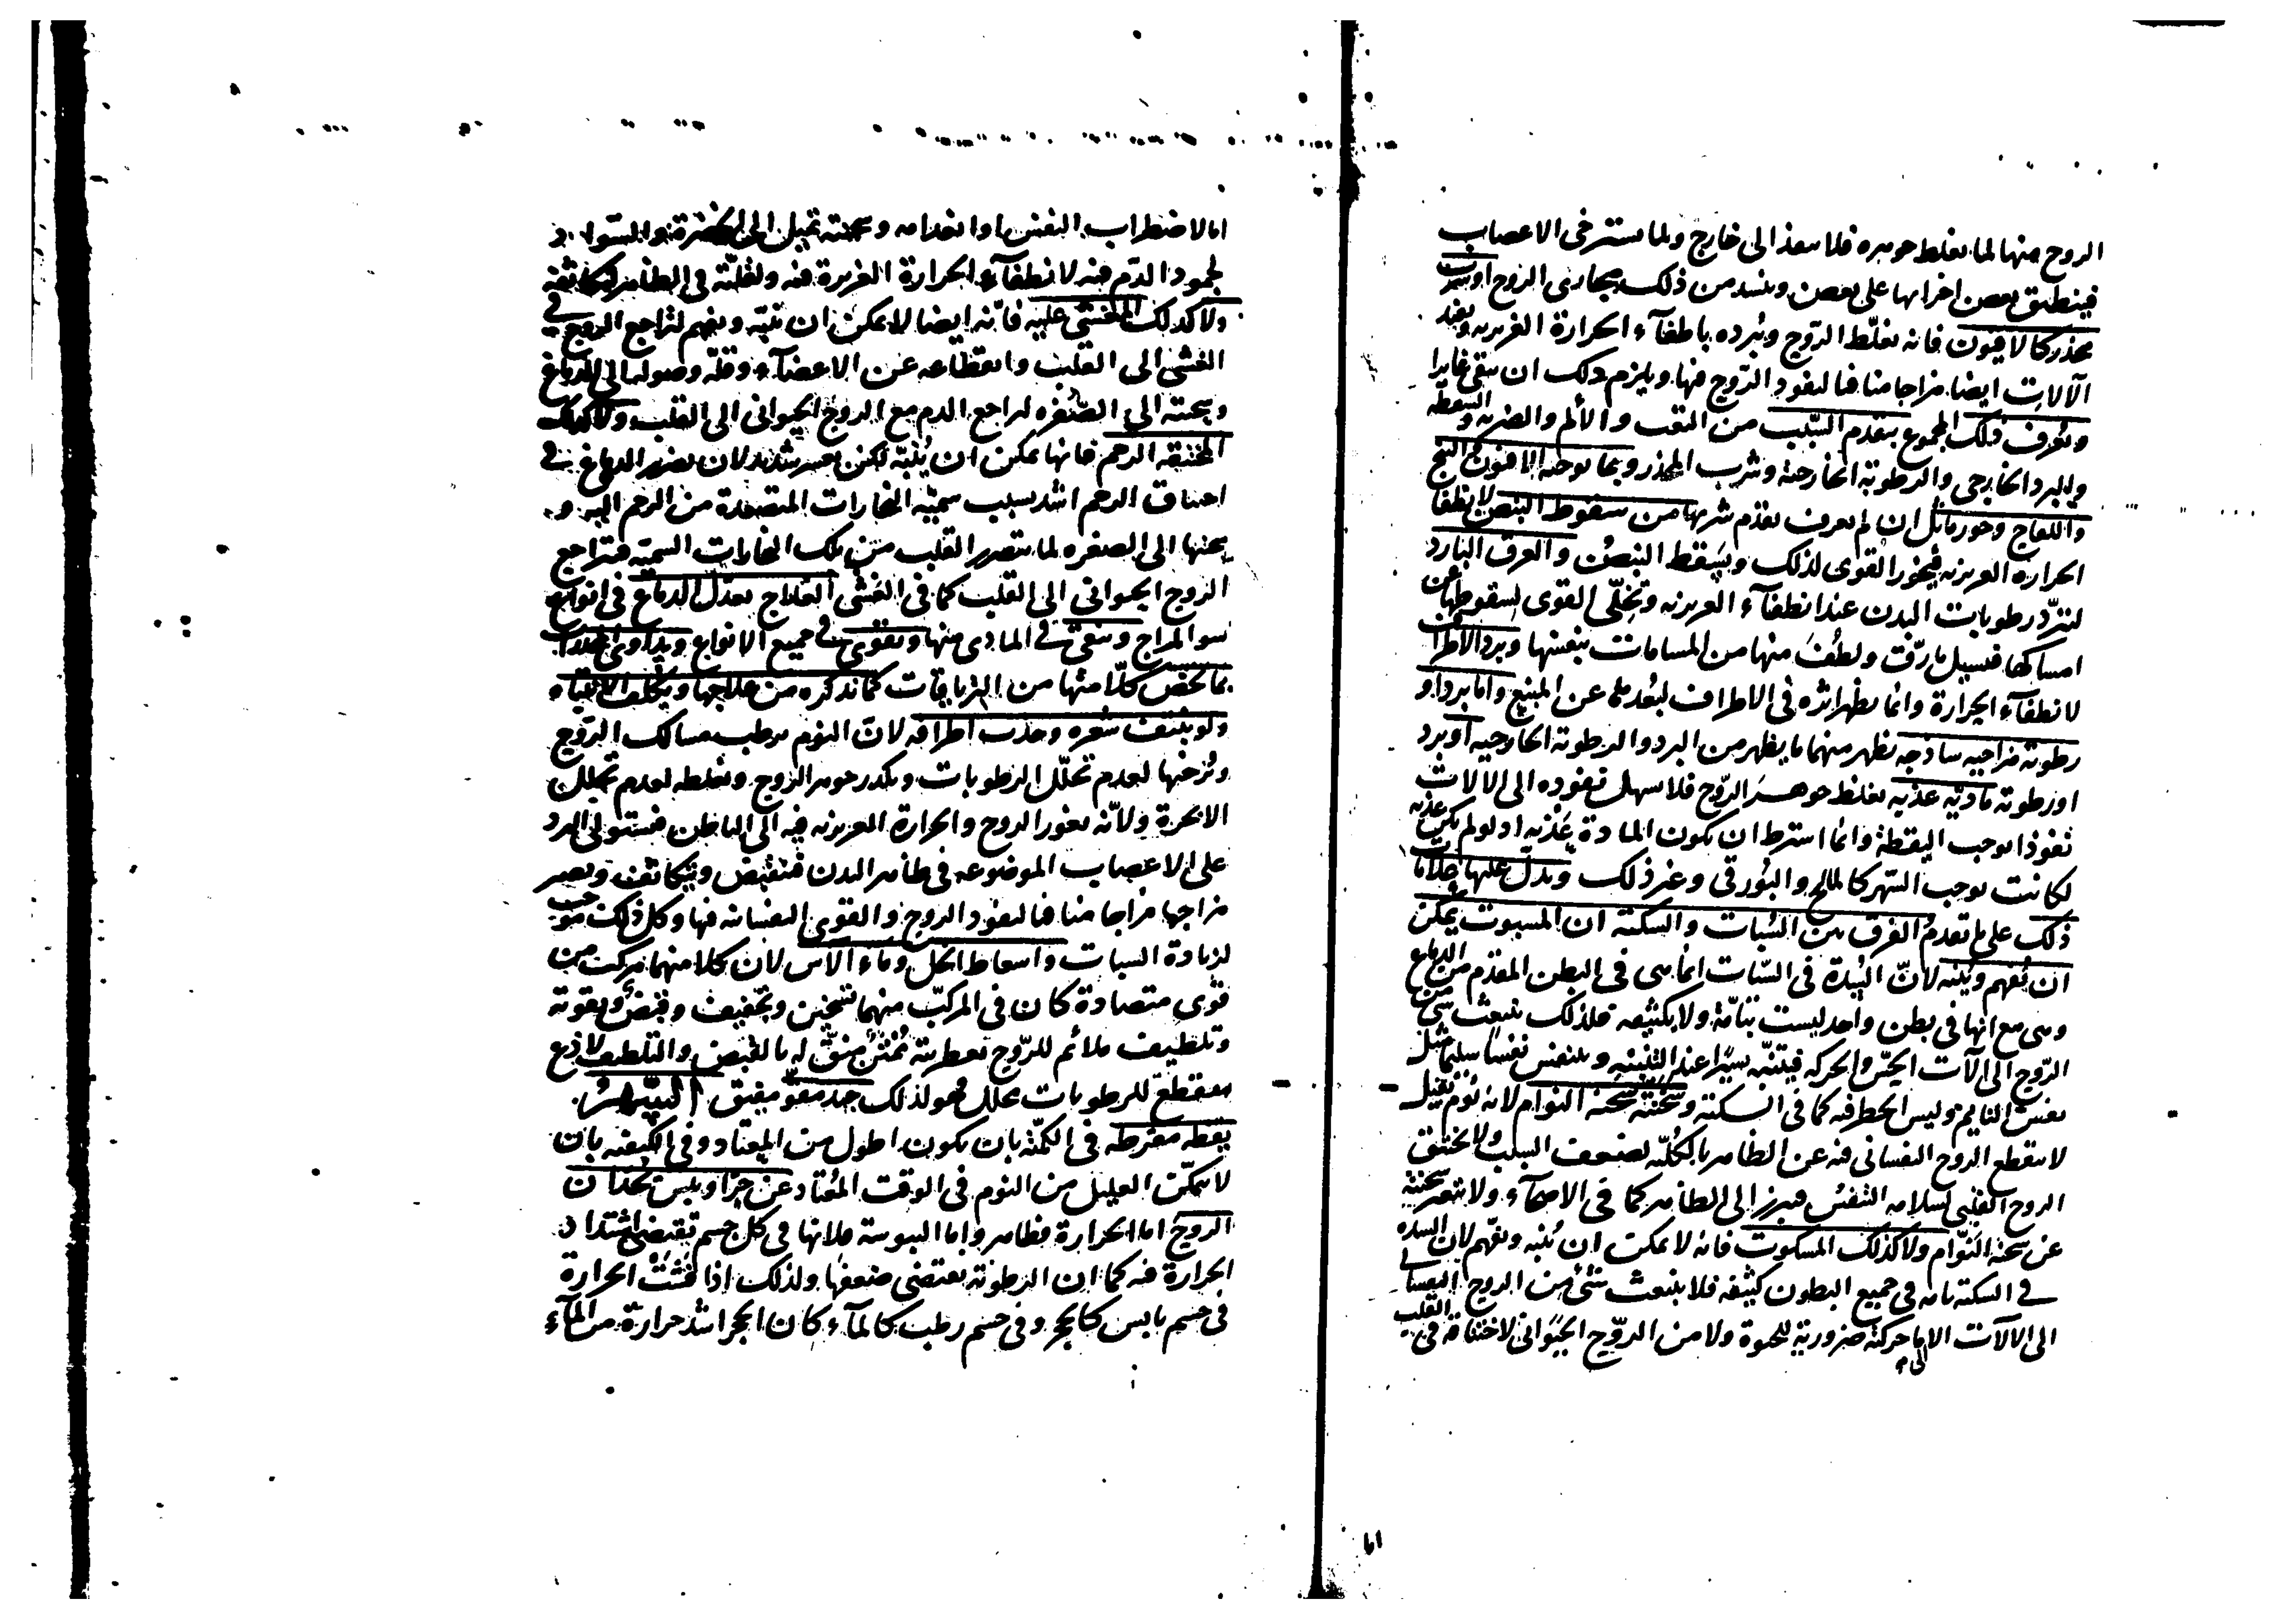 الروح منها لما يغلظ جوهره فلا ينفذ الى خارج ولما يسترخى الاعصاب
فينطبق بعض اجزائها على بعض وينسد من ذلك مجارى الروح او شرب
مخدر كالافيون فانه يغلّظ الروح ويبرده باطفآء الحرارة الغريزيه ويفيد
الآلات ايضا مزاجا منافيا لنفوذ الرّوح فيها ويلزم ذلك ان يبقى غايرا
ويعرف ذلك المجموع بتقدم السّبب من التعب والألم والضربه والسقطه
والبرد الخارجى والرطوبة الخارجة وشرب المخدر وبما يوجبه الافيون والبنج
واللفاح وجوز ماثل ان لم يعرف تقدم شربها من سقوط النبض لانطفا
الحراره الغريزيه فيخور القوى لذلك ويسقط النبض والعرق البارد
لتبرّد رطوبات البدن عند انطفآء الغريزيه وتخلّى القوى لسقوطها عن
امساكها فيسيل ما رقّ ولطف منها من المسامات بنفسها وبرد الاطراف
لانطفآء الحرارة وانما يظهر اثره فى الاطراف لبعدها عن المنبع واما برد او
رطوبة مزاجيه ساذجه يظهر منهما ما يظهر من البرد والرطوبة الخارجيه او برد
او رطوبة مادية عذبه يغلظ جوهر الرّوح فلا يسهل نفوذه الى الالات
نفوذا يوجب اليقظة وانما اشترط ان يكون المادة عذبه اذ لو لم يكن عذبه
لكانت يوجب السّهر كالمالح والبورقى وغير ذلك ويدلّ عليها علامات
ذلك على ما تقدم الفرق بين السّبات والسكتة ان المسبوت يمكن
ان يفهم وينبه لانّ السّدة فى السّبات انما هى فى البطن المقدم من الدماغ
وهى مع انها فى بطن واحد ليست بتامّة ولا بكثيفه فلذلك ينبعث شى من
الرّوح الى آلات الحسّ والحركه فيتنبّه يسيرًا عند التنبيه ويتنفس نفسًا سليما مثل
نفس النايم وليس الخطر فيه كما فى السكتة وسحنته سحنة النوام لانه نوم ثقيل
لا ينقطع الروح النفسانى فيه عن الظاهر بالكليّه لضعف السبب ولا يختنق
الروح القلبى لسلامه التنفس فيبرز الى الظاهر كما فى الاصحآء ولا يتغير سحنته
عن سحنه النوّام ولا كذلك المسكوت فانه لا يمكن ان ينبه ويفهم لان السده
فى السكته تامه فى جميع البطون كثيفه فلا ينبعث شئ من الروح النفسانى
الى الالآت الا ما حركته ضرورية للحيوة ولا من الروح الحيوانى لاختناقه فى القلب
الى
اما لاضطراب النفس او انعدامه وسحنته تميل الى الخضرة والسواد
لجمود الدّم فيه لانطفآء الحرارة الغريزة فيه ولقلّته فى الظاهر لتكاثفه
ولا كذلك المغشى عليه فانّه ايضا لا يمكن ان ينبّه ويفهم لتراجع الروح فى
الغشى الى القلب وانقطاعه عن الاعضآء وقلّة وصوله الى الدماغ
وسحنته الى الصّفره لتراجع الدم مع الروح الحيوانى الى القلب ولا كذلك
المختنقه الرحم فانها يمكن ان يُنبّه لكن بعسر شديد لان تضرر الدماغ فى
اختناق الرحم اشد بسبب سميّه البخارات المتصعدة من الرحم اليه و
سحنتها الى الصفره لما يتضرر القلب من تلك البخارات السميّه فيتراجع
الروح الحيوانى الى القلب كما فى الغشى العلاج تعدل الدماغ فى انواع
سو المزاج وتنقى فى المادى منها وتقوى فى جميع الانواع ويداوى المخدرات
بما يخصّ كلّا منها من الترياقات كما نذكره من علاجها ويكلف الانتباه
ولو بنتف شعره وجذب اطرافه لانّ النوم يرطب مسالك الرّوح
ويُرخيها لعدم تحلّل الرطوبات ويكدر جوهر الروح ويغلظه لعدم تحلل
الابخرة ولانّه يغور الروح والحرارة الغريزيه فيه الى الباطن فيستولى البرد
على الاعصاب الموضوعه فى ظاهر البدن فتنقبض ويتكاثف ويصير
مزاجها مزاجا منافيا لنفوذ الروح والقوى النفسانيه فيها وكل ذلك موجب
لزيادة السبات واسعاط الخل وماء الآس لان كلا منهما مركب من
قوى متضادة كان فى المركّب منهما تسخين وتجفيف وقبض وتقوية
وتلطيف ملائم للرّوح بعطريته مُمَتّن مقوّ له بالقبض والتلطيف لاذع
مقطع للرطوبات محلل فهو لذلك جيد مقوّ مفيق السّهر
يقظه مفرطه فى الكمّيه بان يكون اطول من المعتاد وفى الكيفيه بان
لا يمكّن العليل من النوم فى الوقت المعتاد عن حرّ او يبس يحدّان
الروح اما الحرارة فظاهر واما اليبوسة فلانها فى كل جسم تقتضى اشتداد
الحرارة فيه كما ان الرطوبة يقتضى ضعفها ولذلك اذا فشت الحرارة
فى جسم يابس كالحجر وفى جسم رطب كالمآء كان الحجر اشد حرارة من المآء